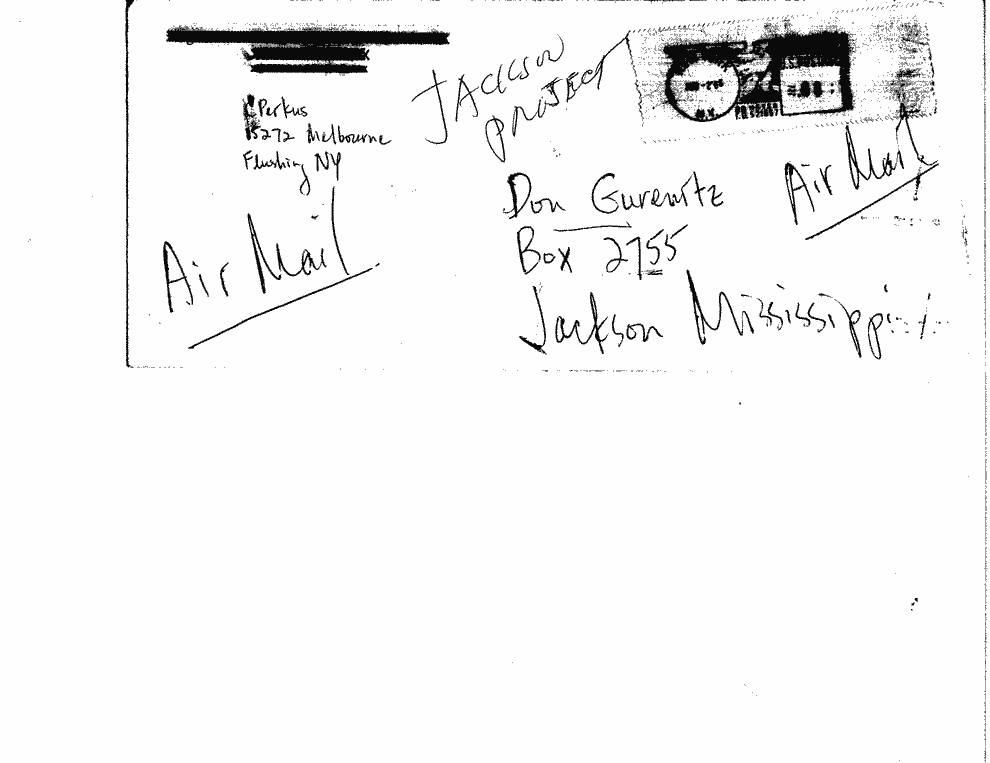 C Perkus
15272 Melbourne
Flushing NY
JACKSON
PROJECT
Air Mail
Don Gurewitz
Box 2755
Jackson Mississippi
Air Mail